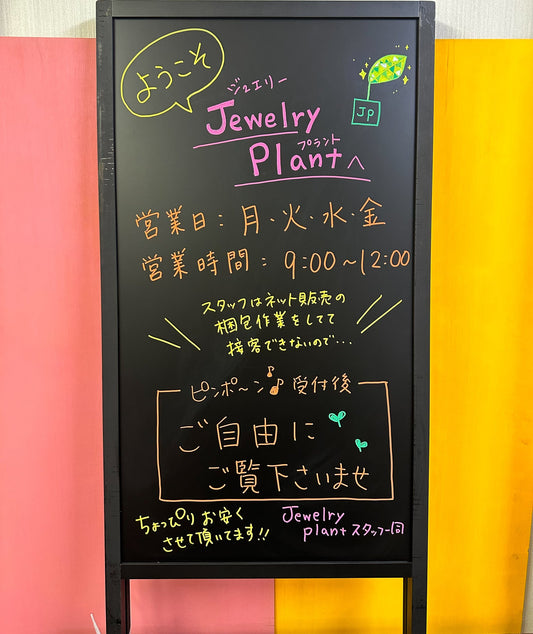 ようこそ
ジュエリー
Jewelry
プラント
Plantへ
JP
営業日：月・火・水・金
営業時間：9:00～12:00
スタッフはネット販売の
梱包作業をしてて
接客できないので…
ピンポ〜ン♪受付後
ご自由に
ご覧下さいませ
ちょっぴりお安く
させて頂いてます!!
Jewelry
plantスタッフ一同